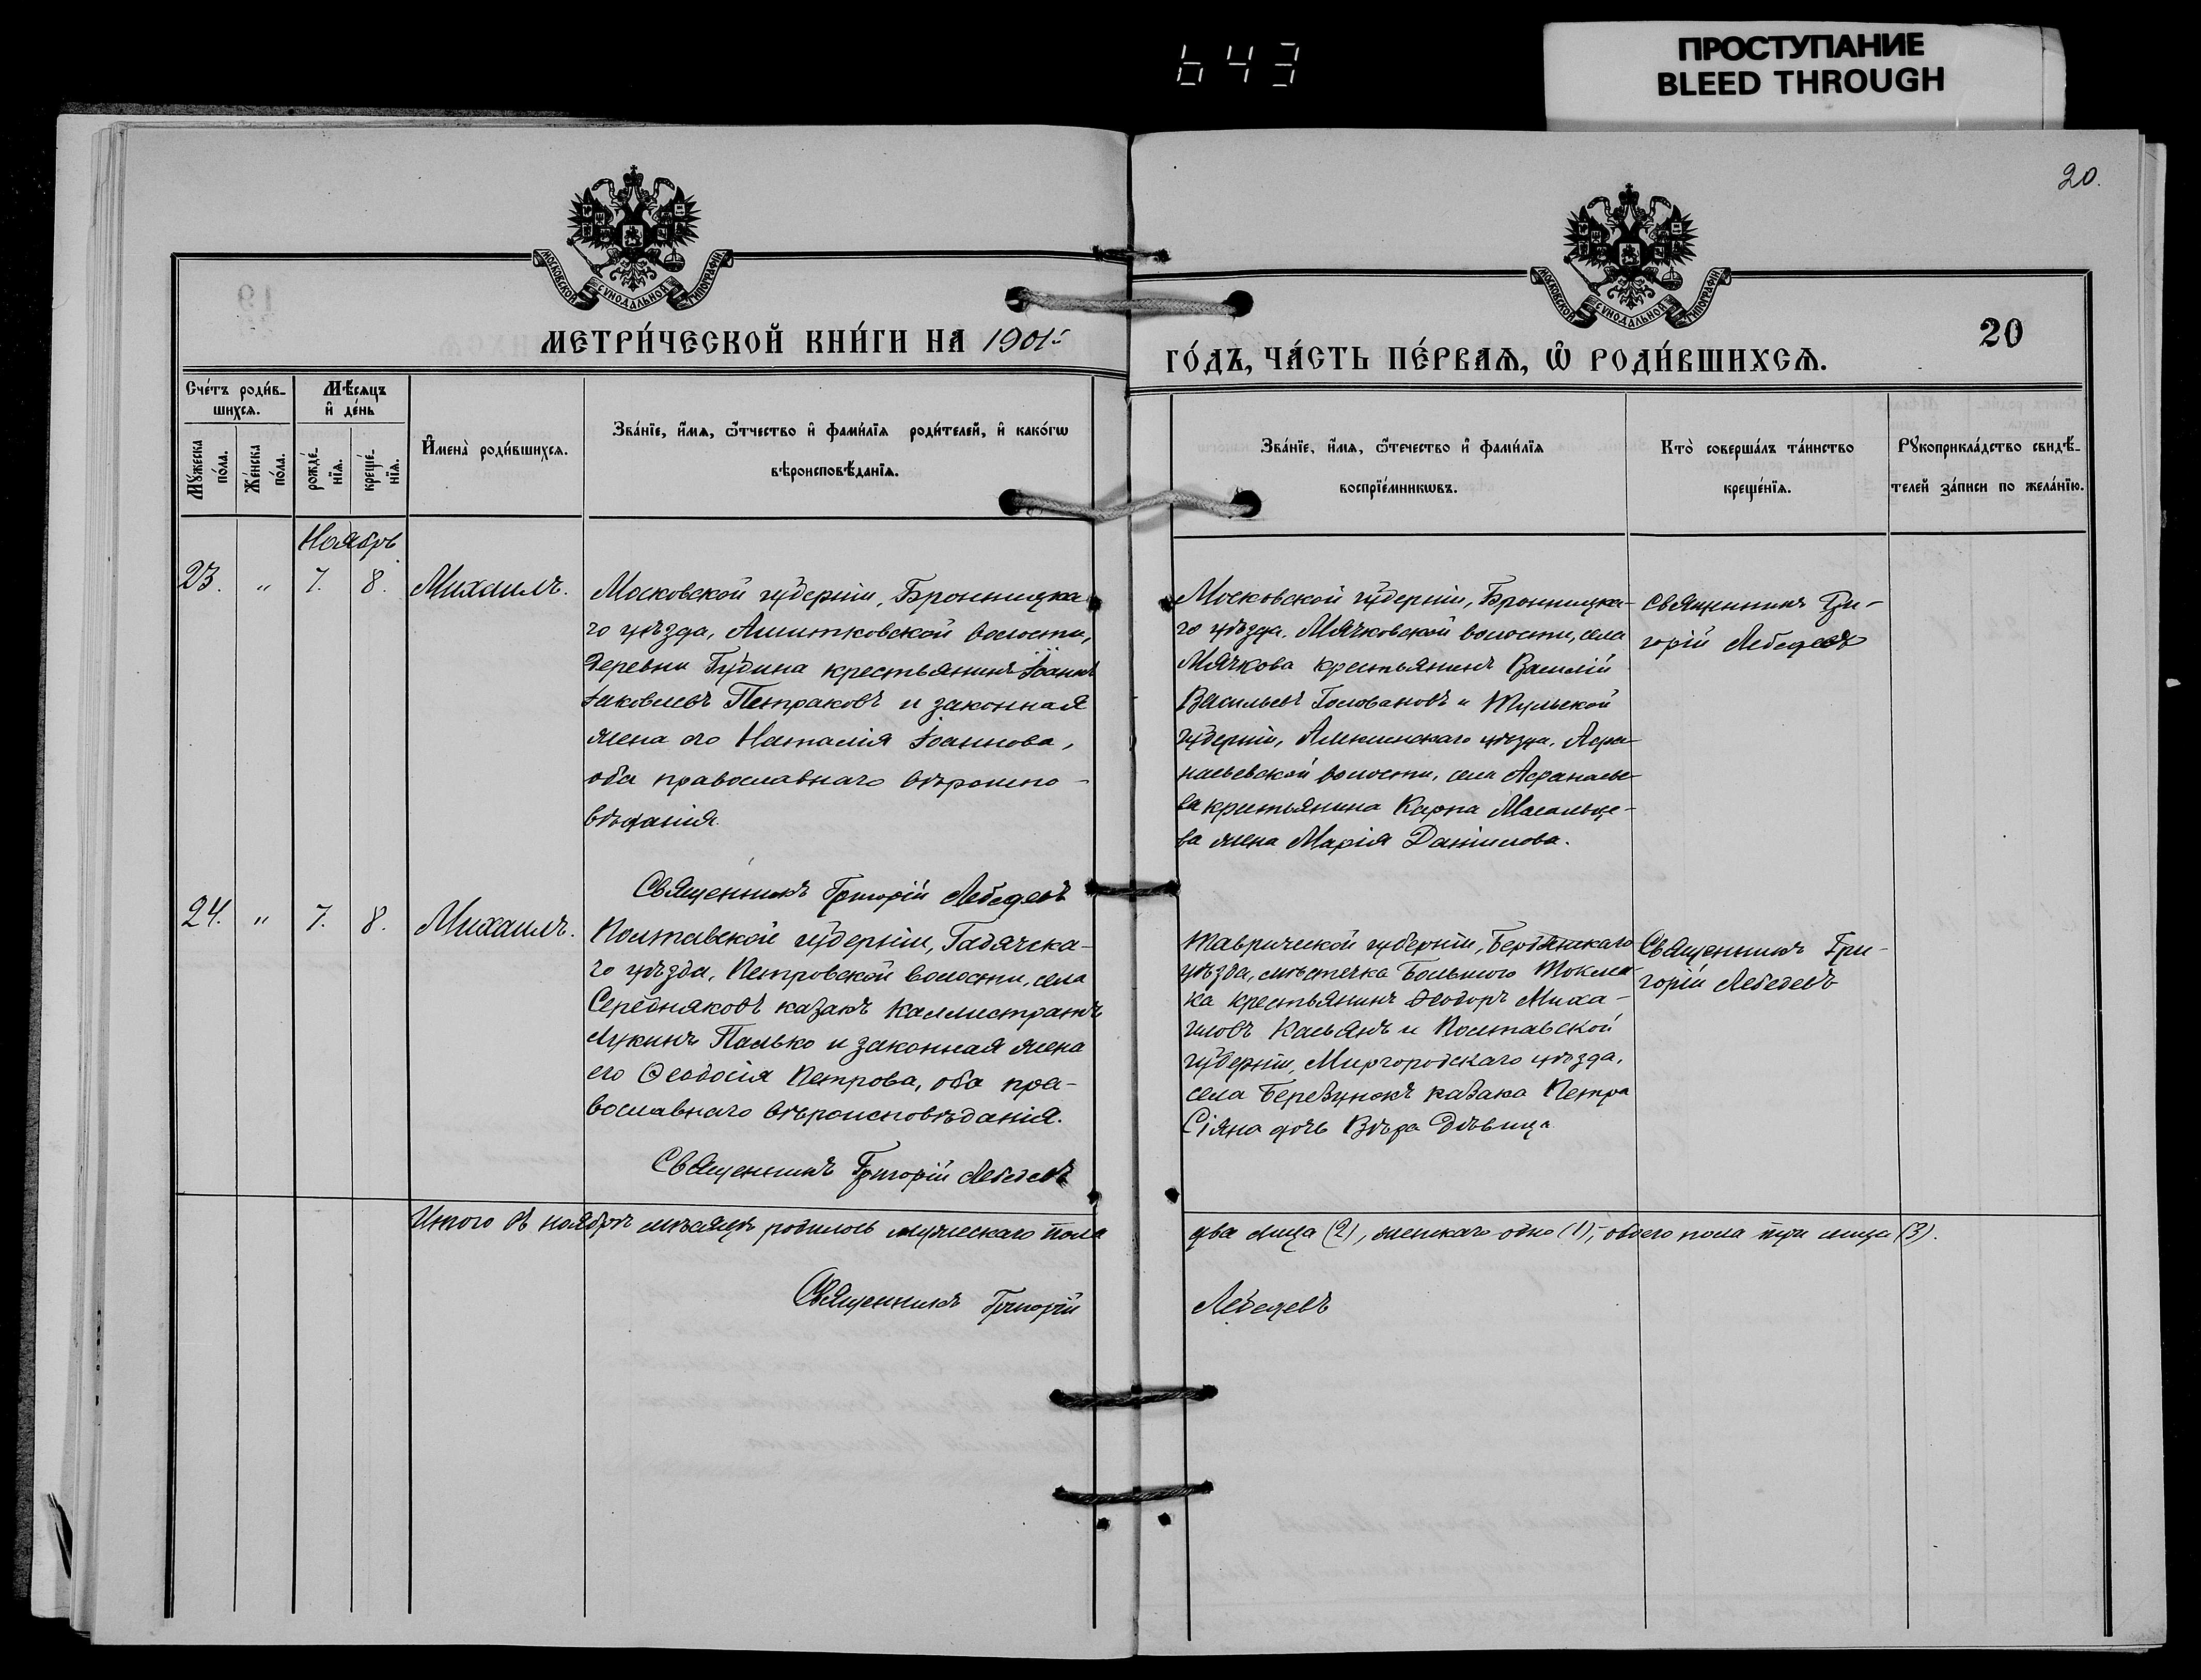 643
ПРОСТУПАНИЕ
BLEED THROUGH
20.
МОСКОВСКОЙ СУНОДАЛЬНОЙ ТИПОГРАФІИ
МОСКОВСКОЙ СУНОДАЛЬНОЙ ТИПОГРАФІИ
МЕТРИ́ЧЕСКОЙ КНИ́ГИ НА 1901й
ГО́ДЪ, ЧА́СТЬ ПЕ́РВАѦ, Ѡ҆ РОДИ́ВШИХСѦ.
20
Сче́тъ роди́в-
шихсѧ.
Мѣ́сѧцъ
и҆ де́нь
Мꙋ́жеска
по́ла.
Же́нска
по́ла.
рожде́-
нїѧ.
креще́-
нїѧ.
И҆мена̀ роди́вшихсѧ.
Зва́нїе, и҆́мѧ, ѻ҆́тчество и҆ фами́лїѧ роди́телей, и҆ како́гѡ
вѣроисповѣ́данїѧ.
Зва́нїе, и҆́мѧ, ѻ҆́течество и҆ фами́лїѧ
воспрїе́мникѡвъ.
Кто̀ соверша́лъ та́инство
креще́нїѧ.
Рꙋкоприкла́дство свидѣ́-
телей за́писи по жела́нїю.
Ноябрь
23. „ 7. 8. Михаилъ.
Московской губерніи, Бронницка-
го уѣзда, Ашитковской волости,
деревни Губина крестьянинъ Іоаннъ
Іаковлевъ Петраковъ и законная
жена его Наталія Іоаннова,
оба православнаго вѣроиспо-
вѣданія.
Священникъ Григорій Лебедевъ
Московской губерніи, Бронницка-
го уѣзда, Мячковской волости, села
Мячкова крестьянинъ Василій
Васильевъ Головановъ и Тульской
губерніи, Алексинскаго уѣзда, Афа-
насьевской волости, села Афанасье-
ва крестьянина Карпа
жена Марія Даніилова.
Священникъ Гри-
горій Лебедевъ
24. „ 7. 8. Михаилъ.
Полтавской губерніи, Гадячска-
го уѣзда, Петровской волости, села
Середняковъ казакъ Каллистратъ
Лукинъ Палько и законная жена
его Ѳеодосія Петрова, оба пра-
вославнаго вѣроисповѣданія.
Священникъ Григорій Лебедевъ
Таврической губерніи, Бердянскаго
уѣзда, мѣстечка Большого Токма-
ка крестьянинъ Ѳеодоръ Миха-
иловъ Касьянъ и Полтавской
губерніи, Миргородскаго уѣзда,
села казака Петра
Сіяна дочь Вѣра дѣвица
Священникъ Гри-
горій Лебедевъ
Итого въ ноябрѣ мѣсяцѣ родилось мужескаго пола
два лица (2), женскаго одно (1), обоего пола три лица (3).
Священникъ Григорій
Лебедевъ